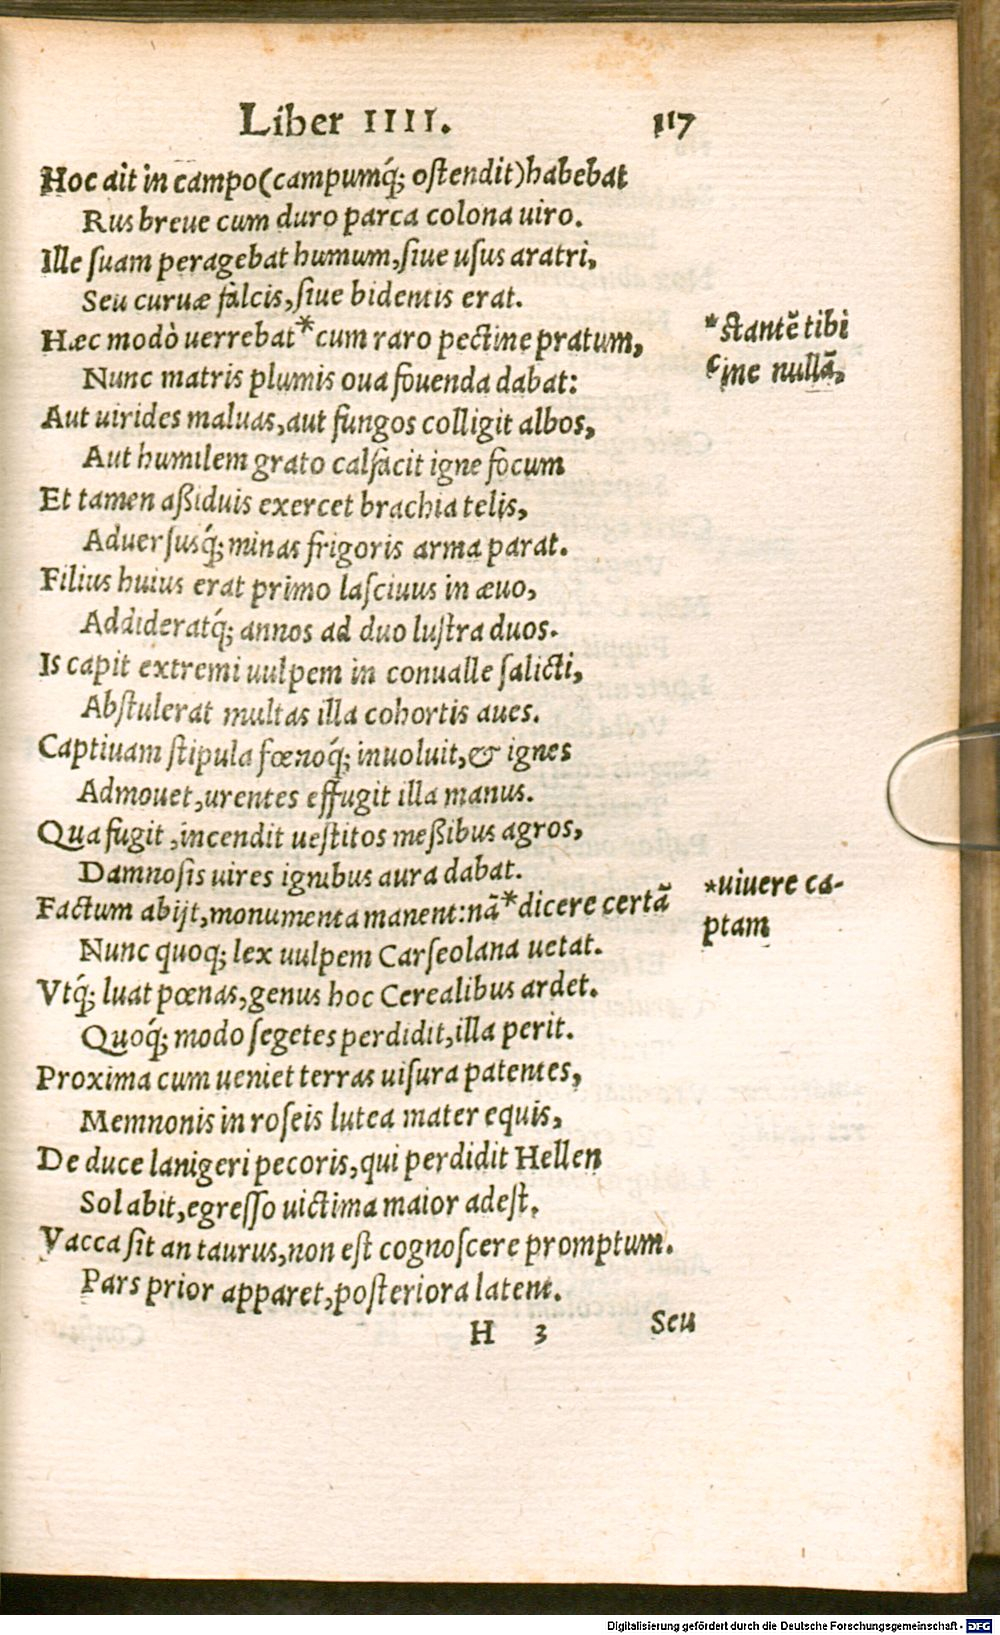 Liber IIII. 117
Hoc ait in campo(campumq́; oſtendit)habebat
Rus breue cum duro parca colona uiro.
Ille ſuam peragebat humum,ſiue uſus aratri,
Seu curuæ falcis,ſiue bidentis erat.
Hæc modò uerrebat*cum raro pectine pratum,
*ſtantē tibi
cine nullā,
Nunc matris plumis oua fouenda dabat:
Aut uirides maluas,aut fungos colligit albos,
Aut humilem grato calfacit igne focum
Et tamen aßiduis exercet brachia telis,
Aduerſusq́; minas frigoris arma parat.
Filius huius erat primo laſciuus in æuo,
Addideratq́; annos ad duo luſtra duos.
Is capit extremi uulpem in conualle ſalicti,
Abſtulerat multas illa cohortis aues.
Captiuam ſtipula fœnoq́; inuoluit,& ignes
Admouet,urentes effugit illa manus.
Qua fugit ,incendit ueſtitos meßibus agros,
Damnoſis uires ignibus aura dabat.
Factum abijt,monumenta manent:nā*dicere certā
*uiuere ca-
ptam
Nunc quoq; lex uulpem Carſeolana uetat.
Vtq́; luat pœnas,genus hoc Cerealibus ardet.
Quoq́; modo ſegetes perdidit,illa perit.
Proxima cum ueniet terras uiſura patentes,
Memnonis in roſeis lutea mater equis,
De duce lanigeri pecoris,qui perdidit Hellen
Sol abit,egreſſo uictima maior adeſt.
Vacca ſit an taurus,non eſt cognoſcere promptum.
Pars prior apparet,poſteriora latent.
H 3 Seu
Digitalisierung gefördert durch die Deutsche Forschungsgemeinschaft - DFG